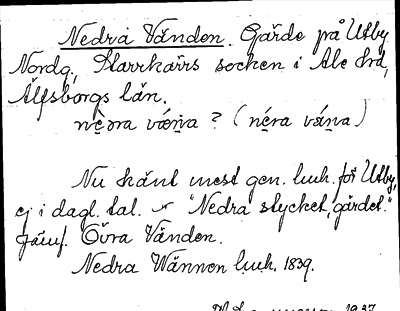 Nedra Vänden. Gärde på Utby
Nordg, Starrkärrs socken i Ale hrd,
Älfsborgs län.
nè̱ora væ̀ṉa ? (né̱ra vǽṉa)
Nu känt mest gen. luh. för Utby,
ej i dagl. tal. "Nedra stycket, gärdet."
Jämf. Övra Vänden.
Nedra Wännen luh. 1839.
1937